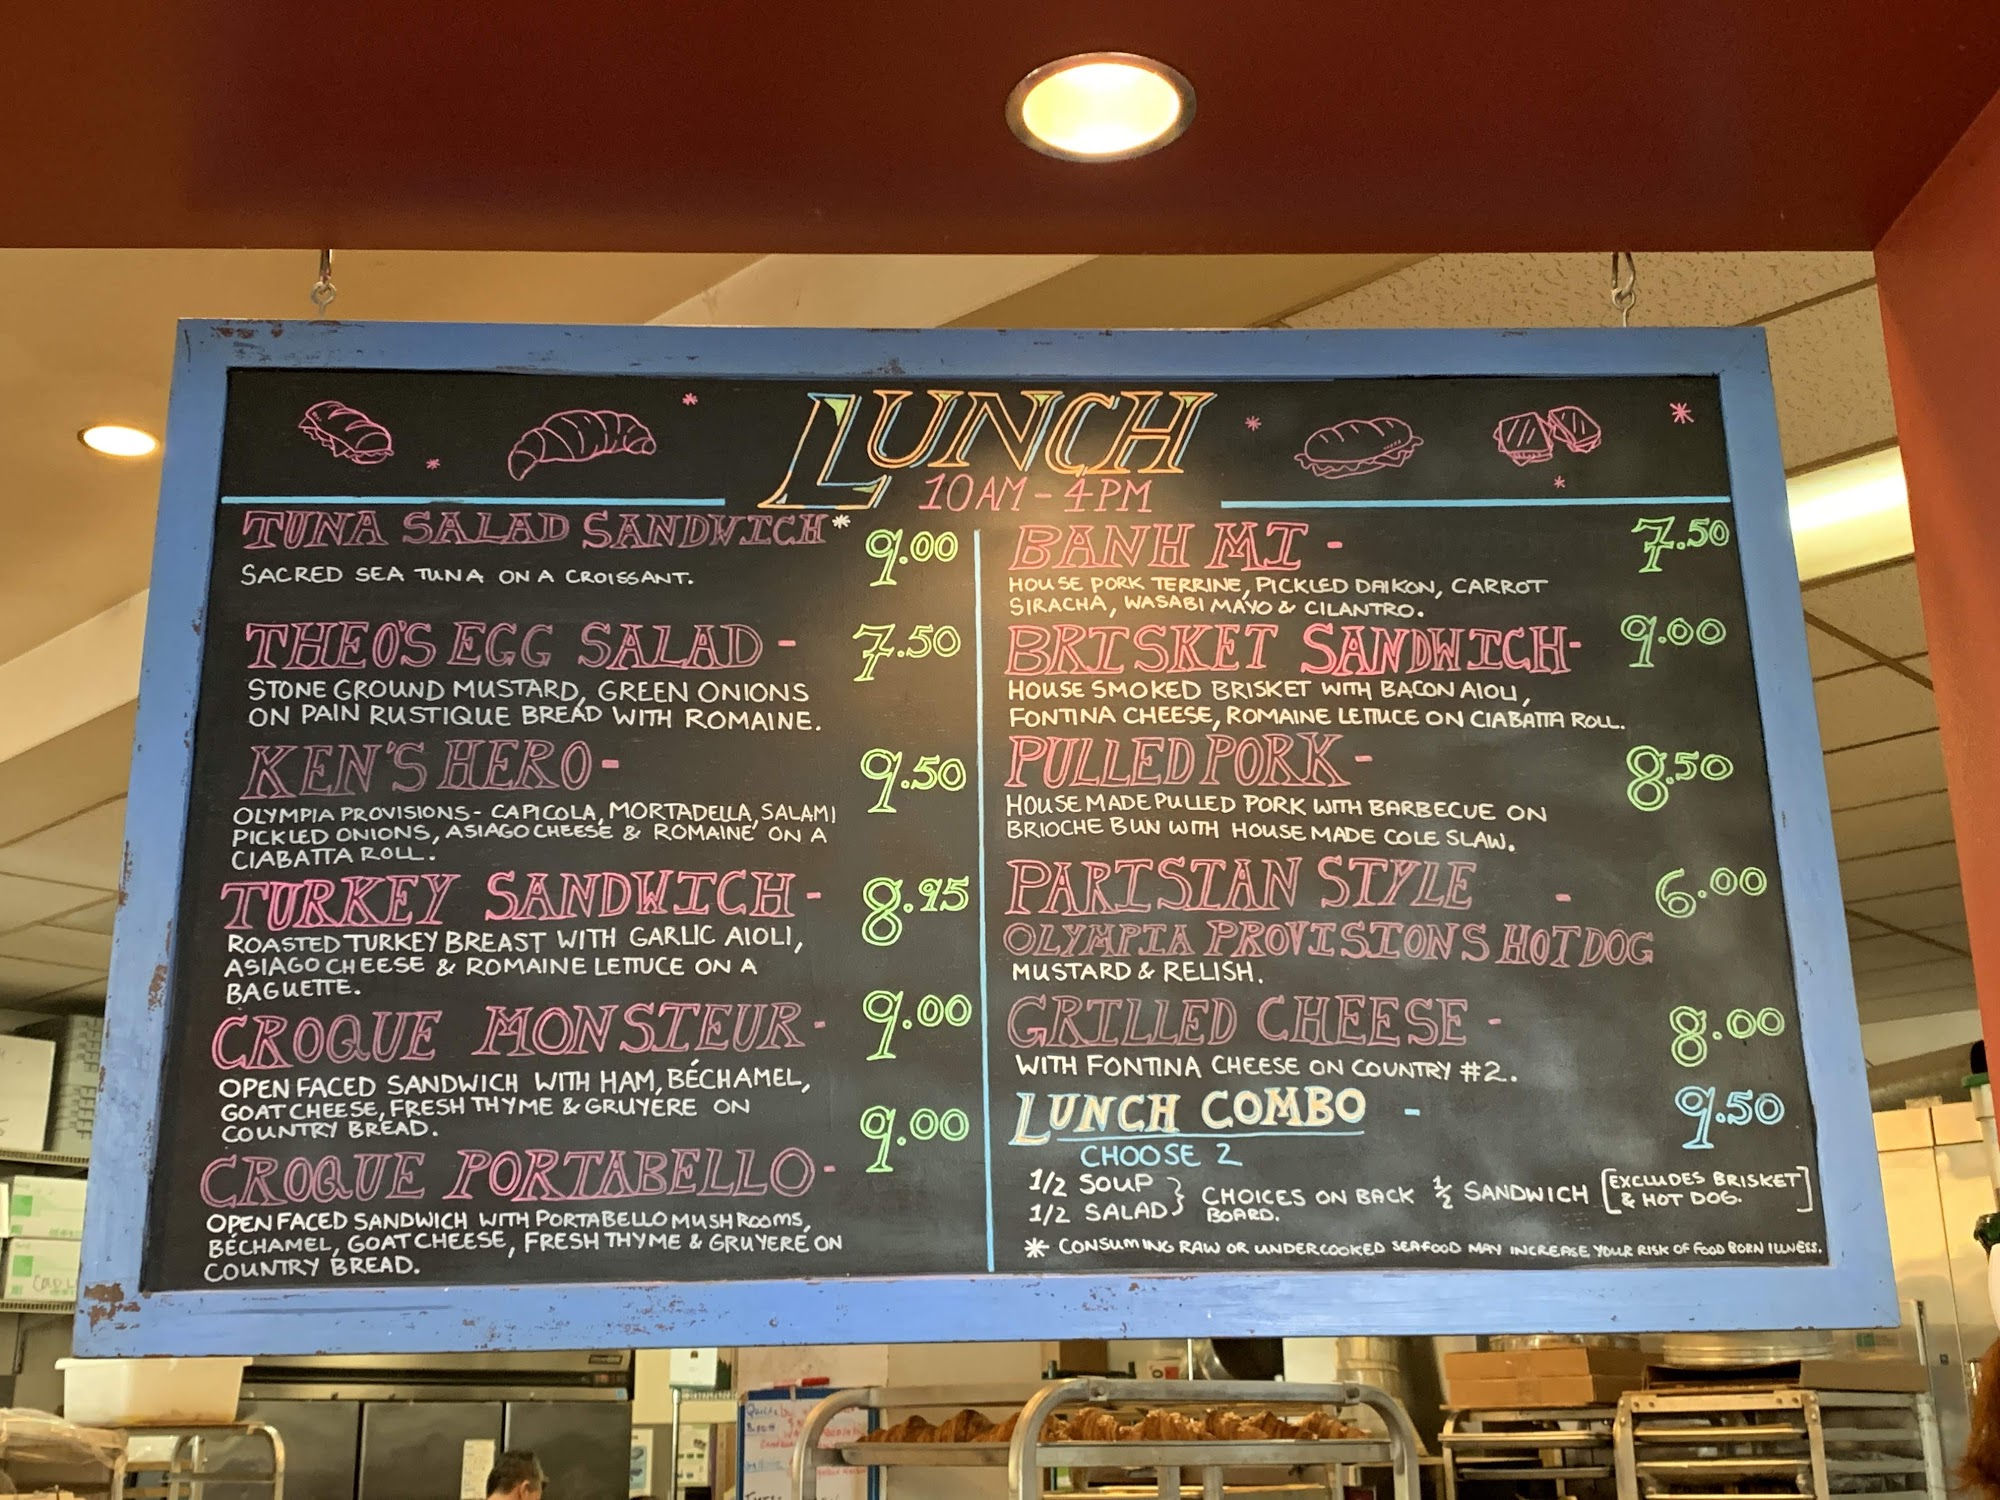 LUNCH
10AM - 4PM
TUNA SALAD SANDWICH* 9.00
SACRED SEA TUNA ON A CROISSANT.
THEO'S EGG SALAD - 7.50
STONE GROUND MUSTARD, GREEN ONIONS
ON PAIN RUSTIQUE BREAD WITH ROMAINE.
KEN'S HERO - 9.50
OLYMPIA PROVISIONS - CAPICOLA, MORTADELLA, SALAMI
PICKLED ONIONS, ASIAGO CHEESE & ROMAINE ON A
CIABATTA ROLL.
TURKEY SANDWICH - 8.95
ROASTED TURKEY BREAST WITH GARLIC AIOLI,
ASIAGO CHEESE & ROMAINE LETTUCE ON A
BAGUETTE.
CROQUE MONSIEUR - 9.00
OPEN FACED SANDWICH WITH HAM, BÉCHAMEL,
GOAT CHEESE, FRESH THYME & GRUYERE ON
COUNTRY BREAD.
CROQUE PORTABELLO - 9.00
OPEN FACED SANDWICH WITH PORTABELLO MUSHROOMS,
BÉCHAMEL, GOAT CHEESE, FRESH THYME & GRUYERE ON
COUNTRY BREAD.
BANH MI - 7.50
HOUSE PORK TERRINE, PICKLED DAIKON, CARROT
SIRACHA, WASABI MAYO & CILANTRO.
BRISKET SANDWICH - 9.00
HOUSE SMOKED BRISKET WITH BACON AIOLI,
FONTINA CHEESE, ROMAINE LETTUCE ON CIABATTA ROLL.
PULLED PORK - 8.50
HOUSE MADE PULLED PORK WITH BARBECUE ON
BRIOCHE BUN WITH HOUSE MADE COLE SLAW.
PARISIAN STYLE - 6.00
OLYMPIA PROVISIONS HOT DOG
MUSTARD & RELISH.
GRILLED CHEESE - 8.00
WITH FONTINA CHEESE ON COUNTRY #2.
LUNCH COMBO - 9.50
CHOOSE 2
1/2 SOUP
1/2 SALAD } CHOICES ON BACK BOARD. 1/2 SANDWICH [EXCLUDES BRISKET & HOT DOG.]
* CONSUMING RAW OR UNDERCOOKED SEAFOOD MAY INCREASE YOUR RISK OF FOOD BORN ILLNESS.